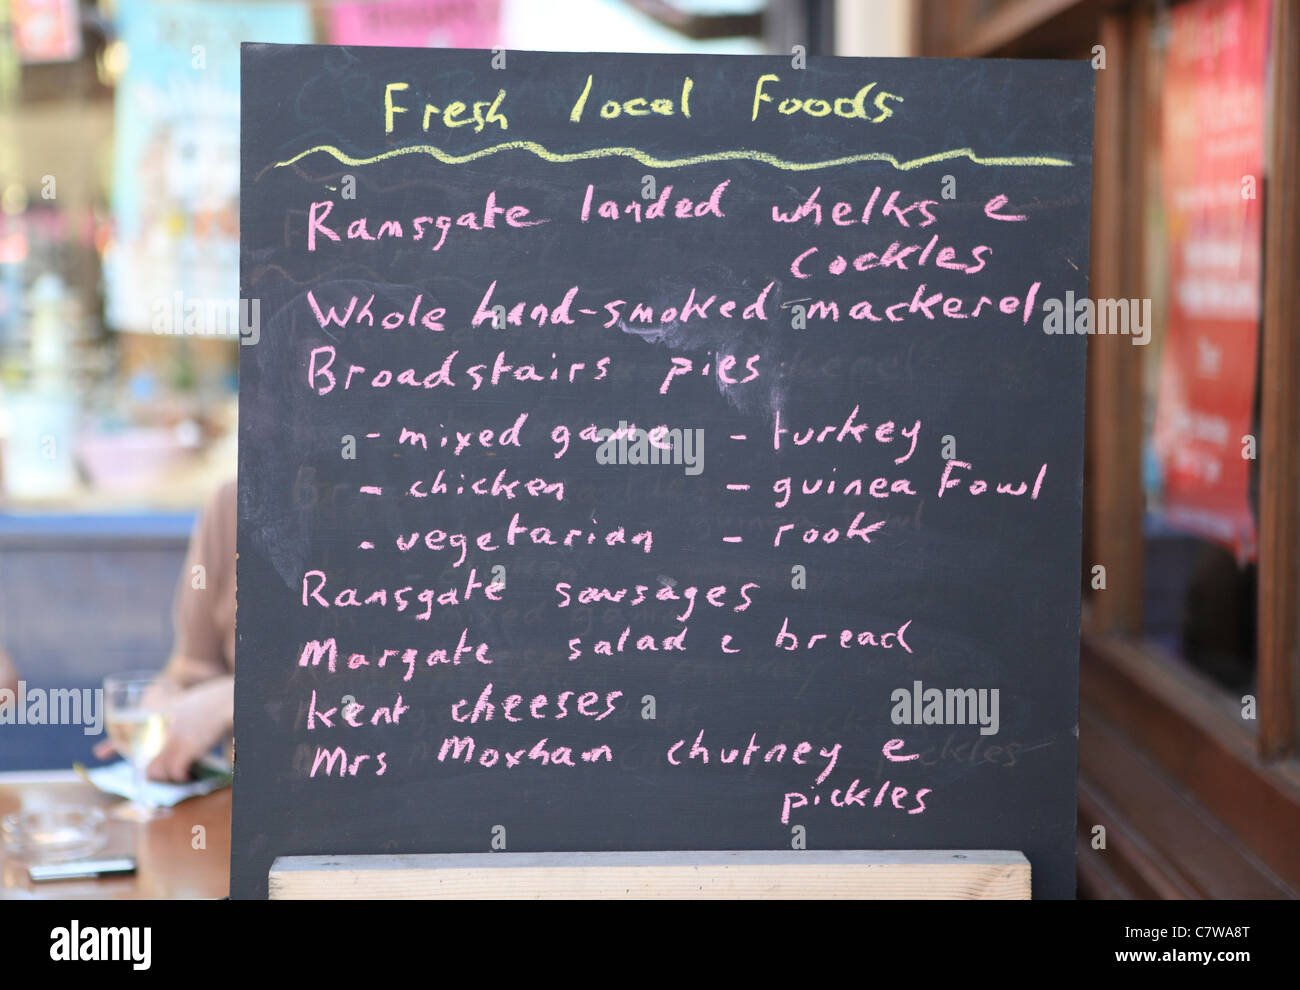 Fresh local Foods
Ramsgate landed whelks e
cockles
Whole hand-smoked mackerel
Broadstairs pies
- mixed game - turkey
- chicken - guinea Fowl
- vegetarian - rook
Ramsgate sausages
Margate salad e bread
Kent cheeses
Mrs Moxham chutney e
pickles
alamy
Image ID: C7WA8T
www.alamy.com